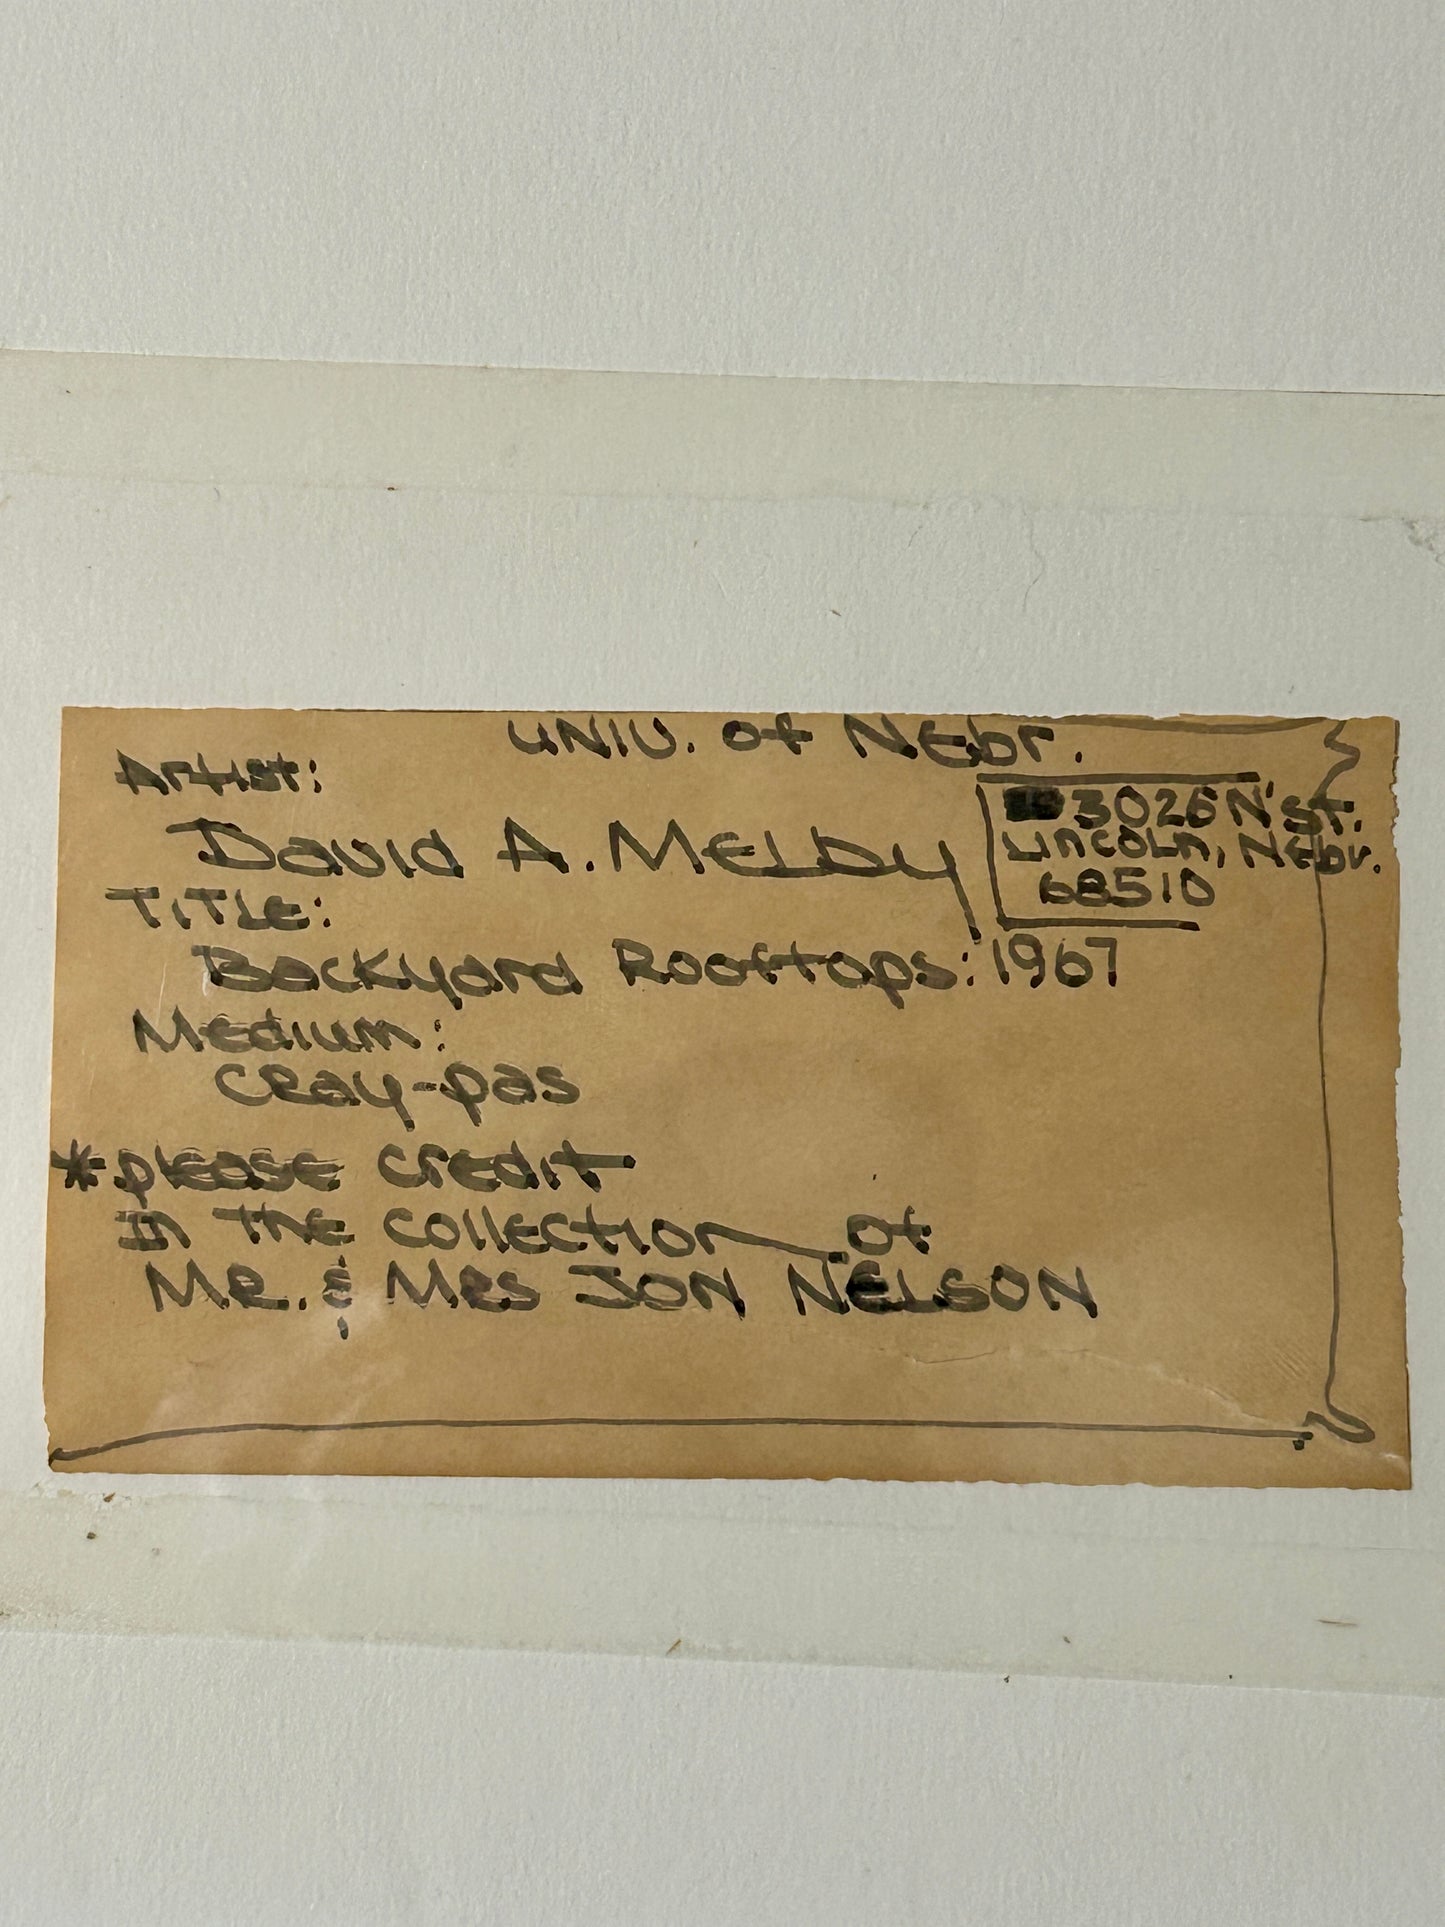 UNIV. of NEbr.
Artist:
David A. MELby
3026 N' St.
Lincoln, Nebr.
68510
TITLE:
Backyard Rooftops: 1967
Medium:
CRay-pas
*please credit
In THE collection of
MR. & MRS JON NELSON